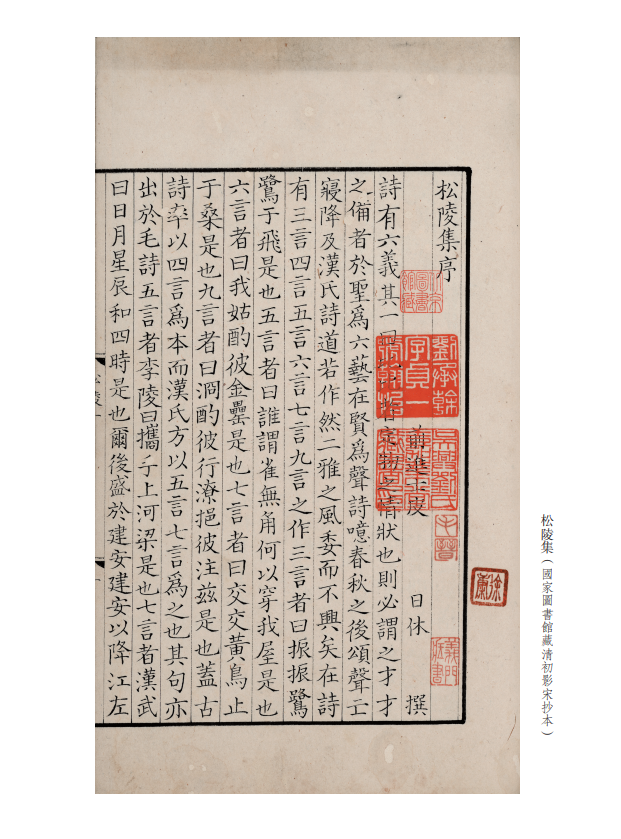 松陵集序
前進士皮日休撰
詩有六義其一曰者定物之情狀也則必謂之才才
之備者於聖爲六藝在賢爲聲詩噫春秋之後頌聲亡
寢降及漢氏詩道若作然二雅之風委而不興矣在詩
有三言四言五言六言七言九言之作三言者曰振振鷺
鷺于飛是也五言者曰誰謂雀無角何以穿我屋是也
六言者曰我姑酌彼金罍是也七言者曰交交黃鳥止
于桑是也九言者曰泂酌彼行潦挹彼注兹是也蓋古
詩率以四言爲本而漢氏方以五言七言爲之也其句亦
出於毛詩五言者李陵曰攜手上河梁是也七言者漢武
曰日月星辰和四時是也爾後盛於建安建安以降江左
劉承幹
字貞一
號翰怡
徐蘭
松陵集（國家圖書館藏清初影宋抄本）